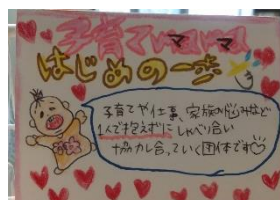 子育てママ
はじめの一歩
子育てや仕事、家族の悩みなど
1人で抱えずに しゃべり合い
協力し合っていく団体です